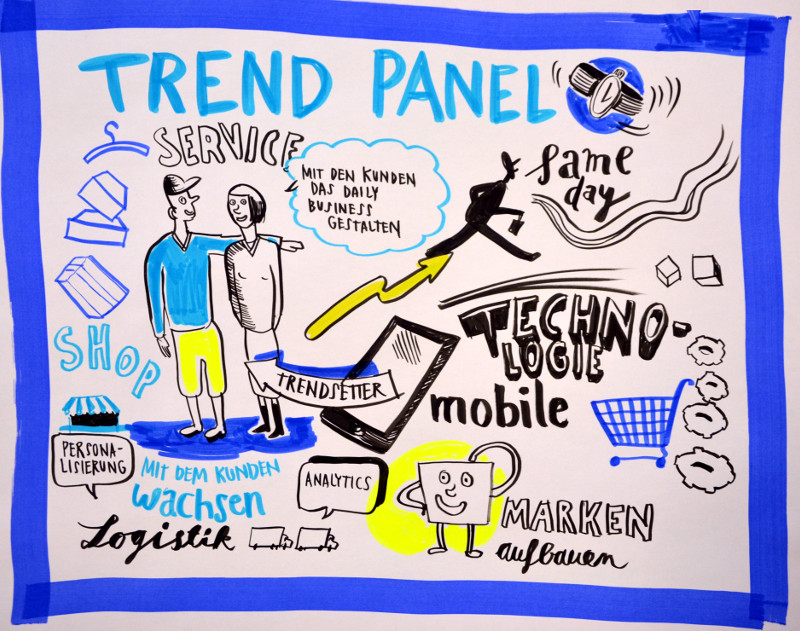 TREND PANEL
SERVICE
MIT DEN KUNDEN
DAS DAILY
BUSINESS
GESTALTEN
same
day
TECHNO-
LOGIE
mobile
SHOP
TRENDSETTER
PERSONA-
LISIERUNG
MIT DEM KUNDEN
wachsen
ANALYTICS
Logistik
MARKEN
aufbauen